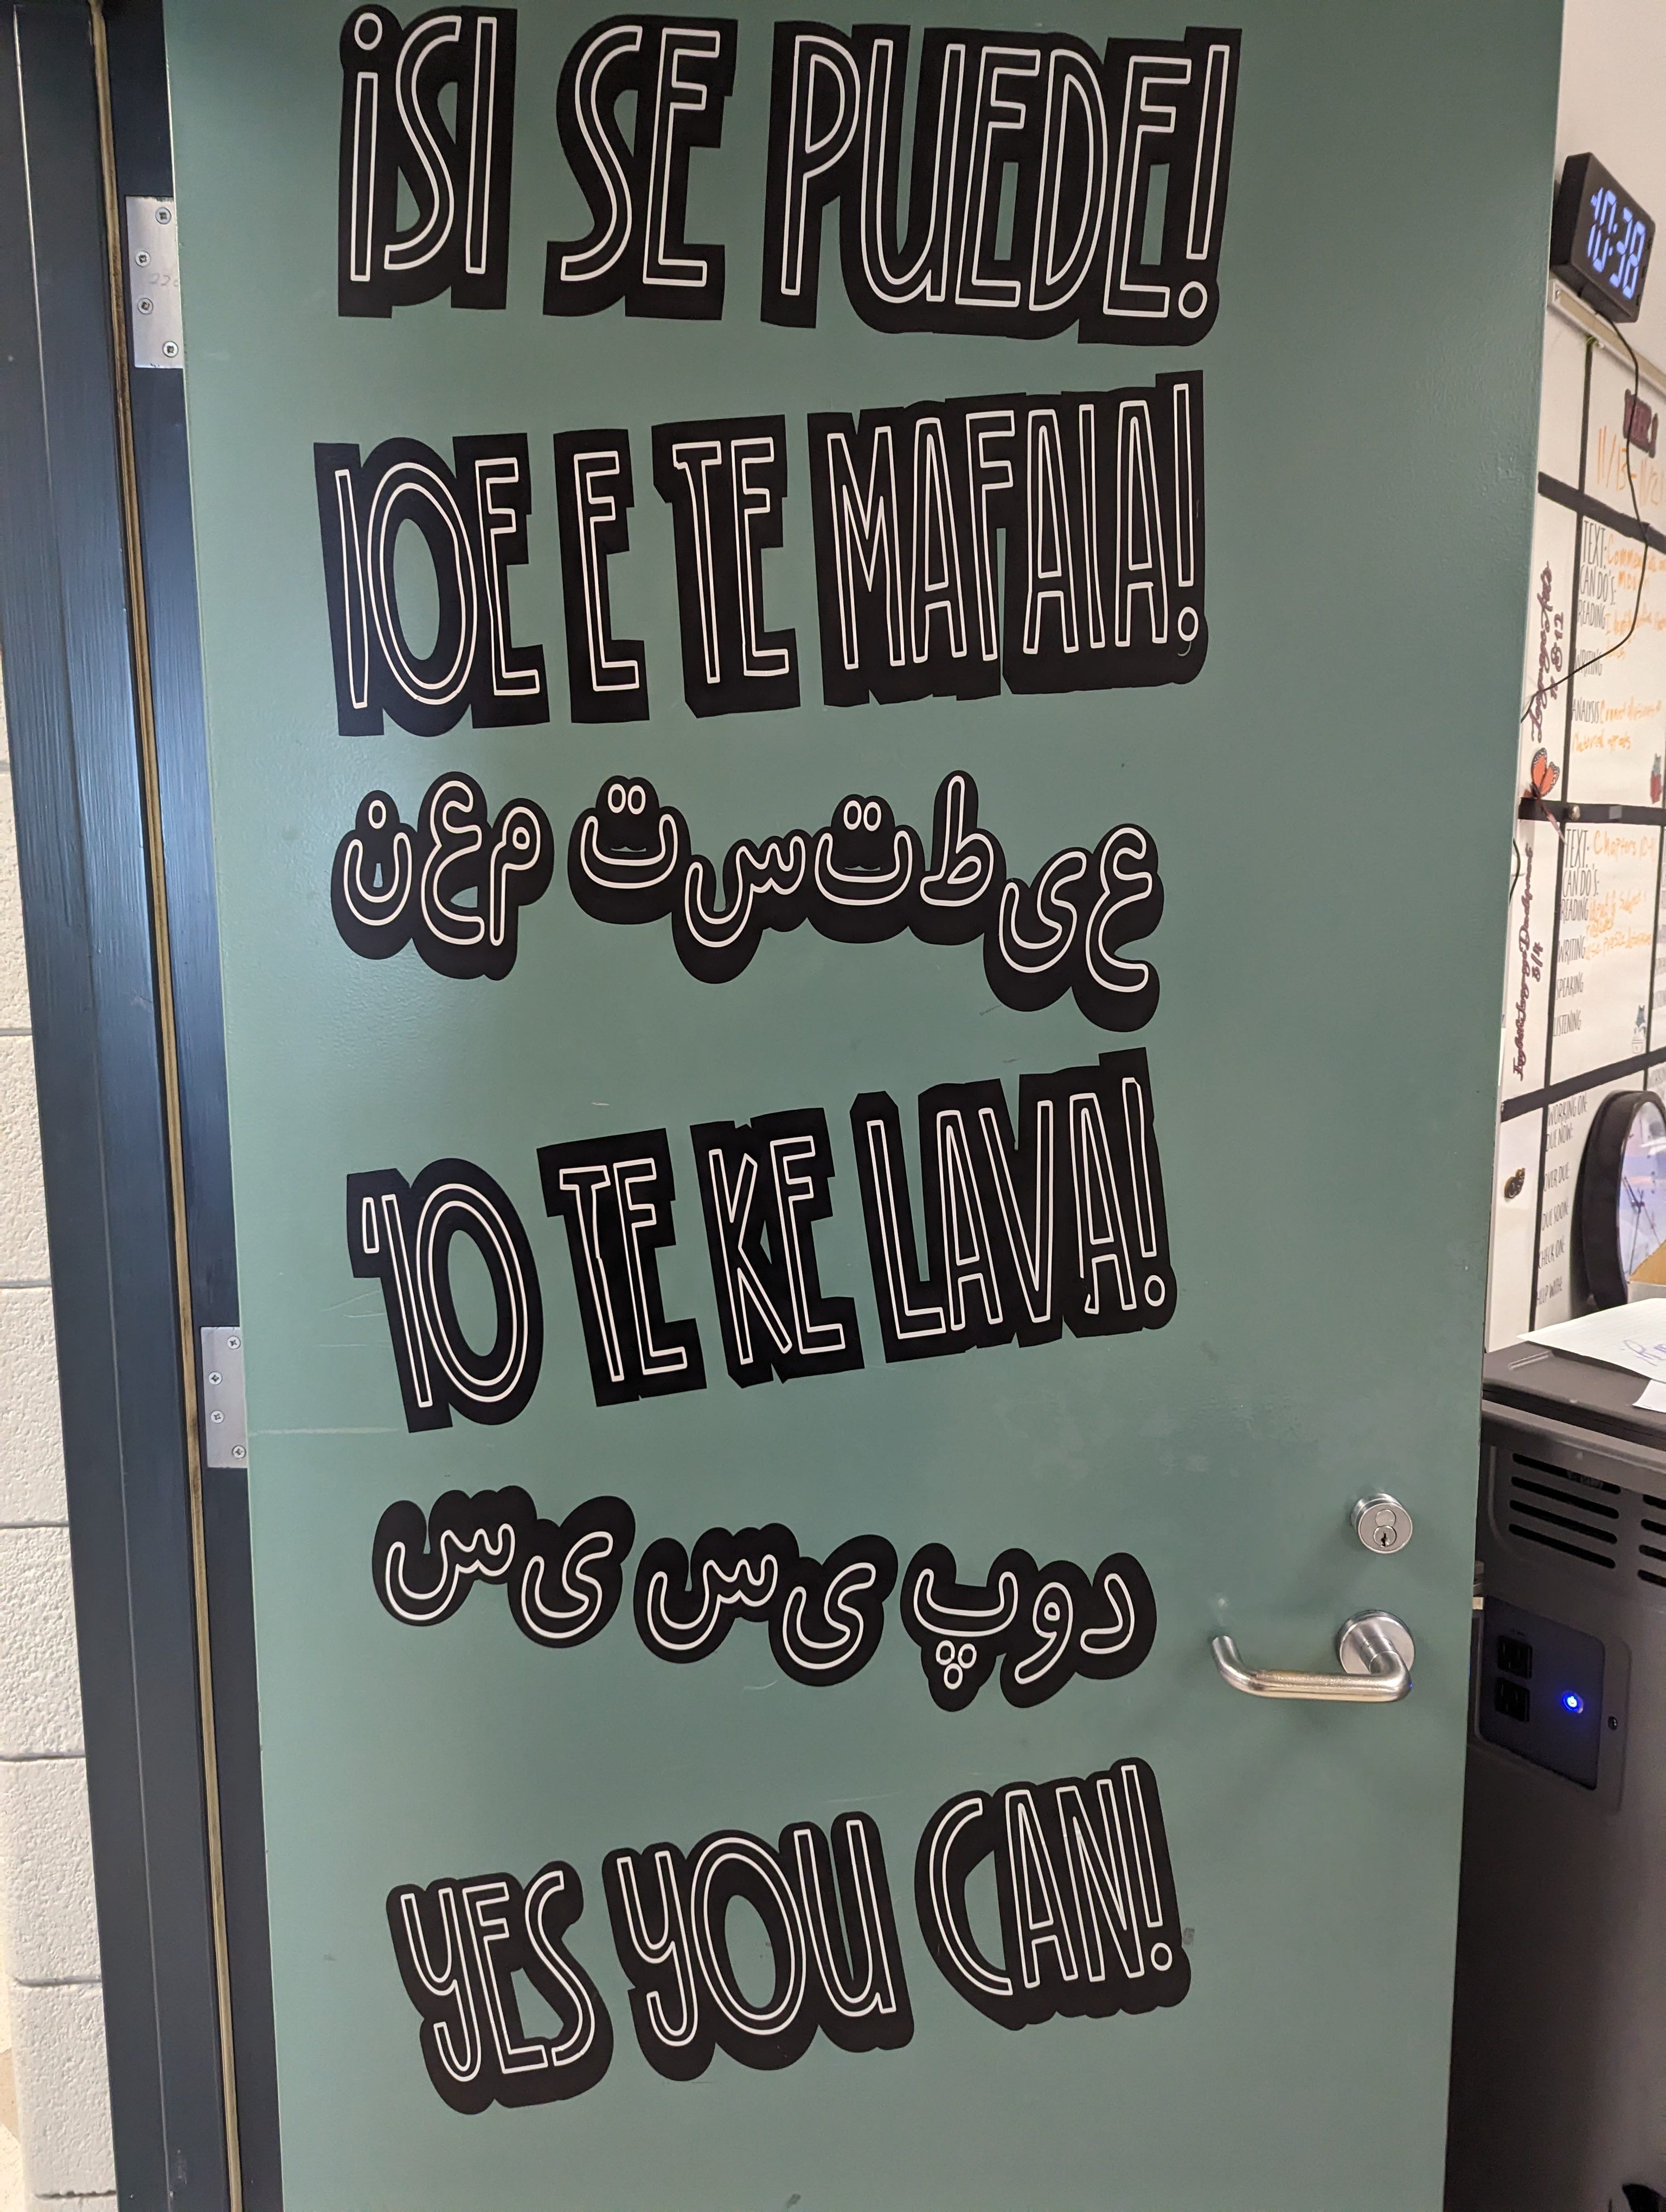 ¡SI SE PUEDE!
IOE E TE MAFAIA!
ن ع م ت س ت ط ی ع
'IO TE KE LAVA!
س ی س ی پ و د
YES YOU CAN!
10:38
TEXT:
CAN DO'S:
READING:
WRITING
ANALYSIS
TEXT: Chapters
CAN DO'S:
READING
WRITING
SPEAKING
LISTENING
WORKING ON:
DUE NOW:
OVER DUE
DUE SOON:
CHECK ON: